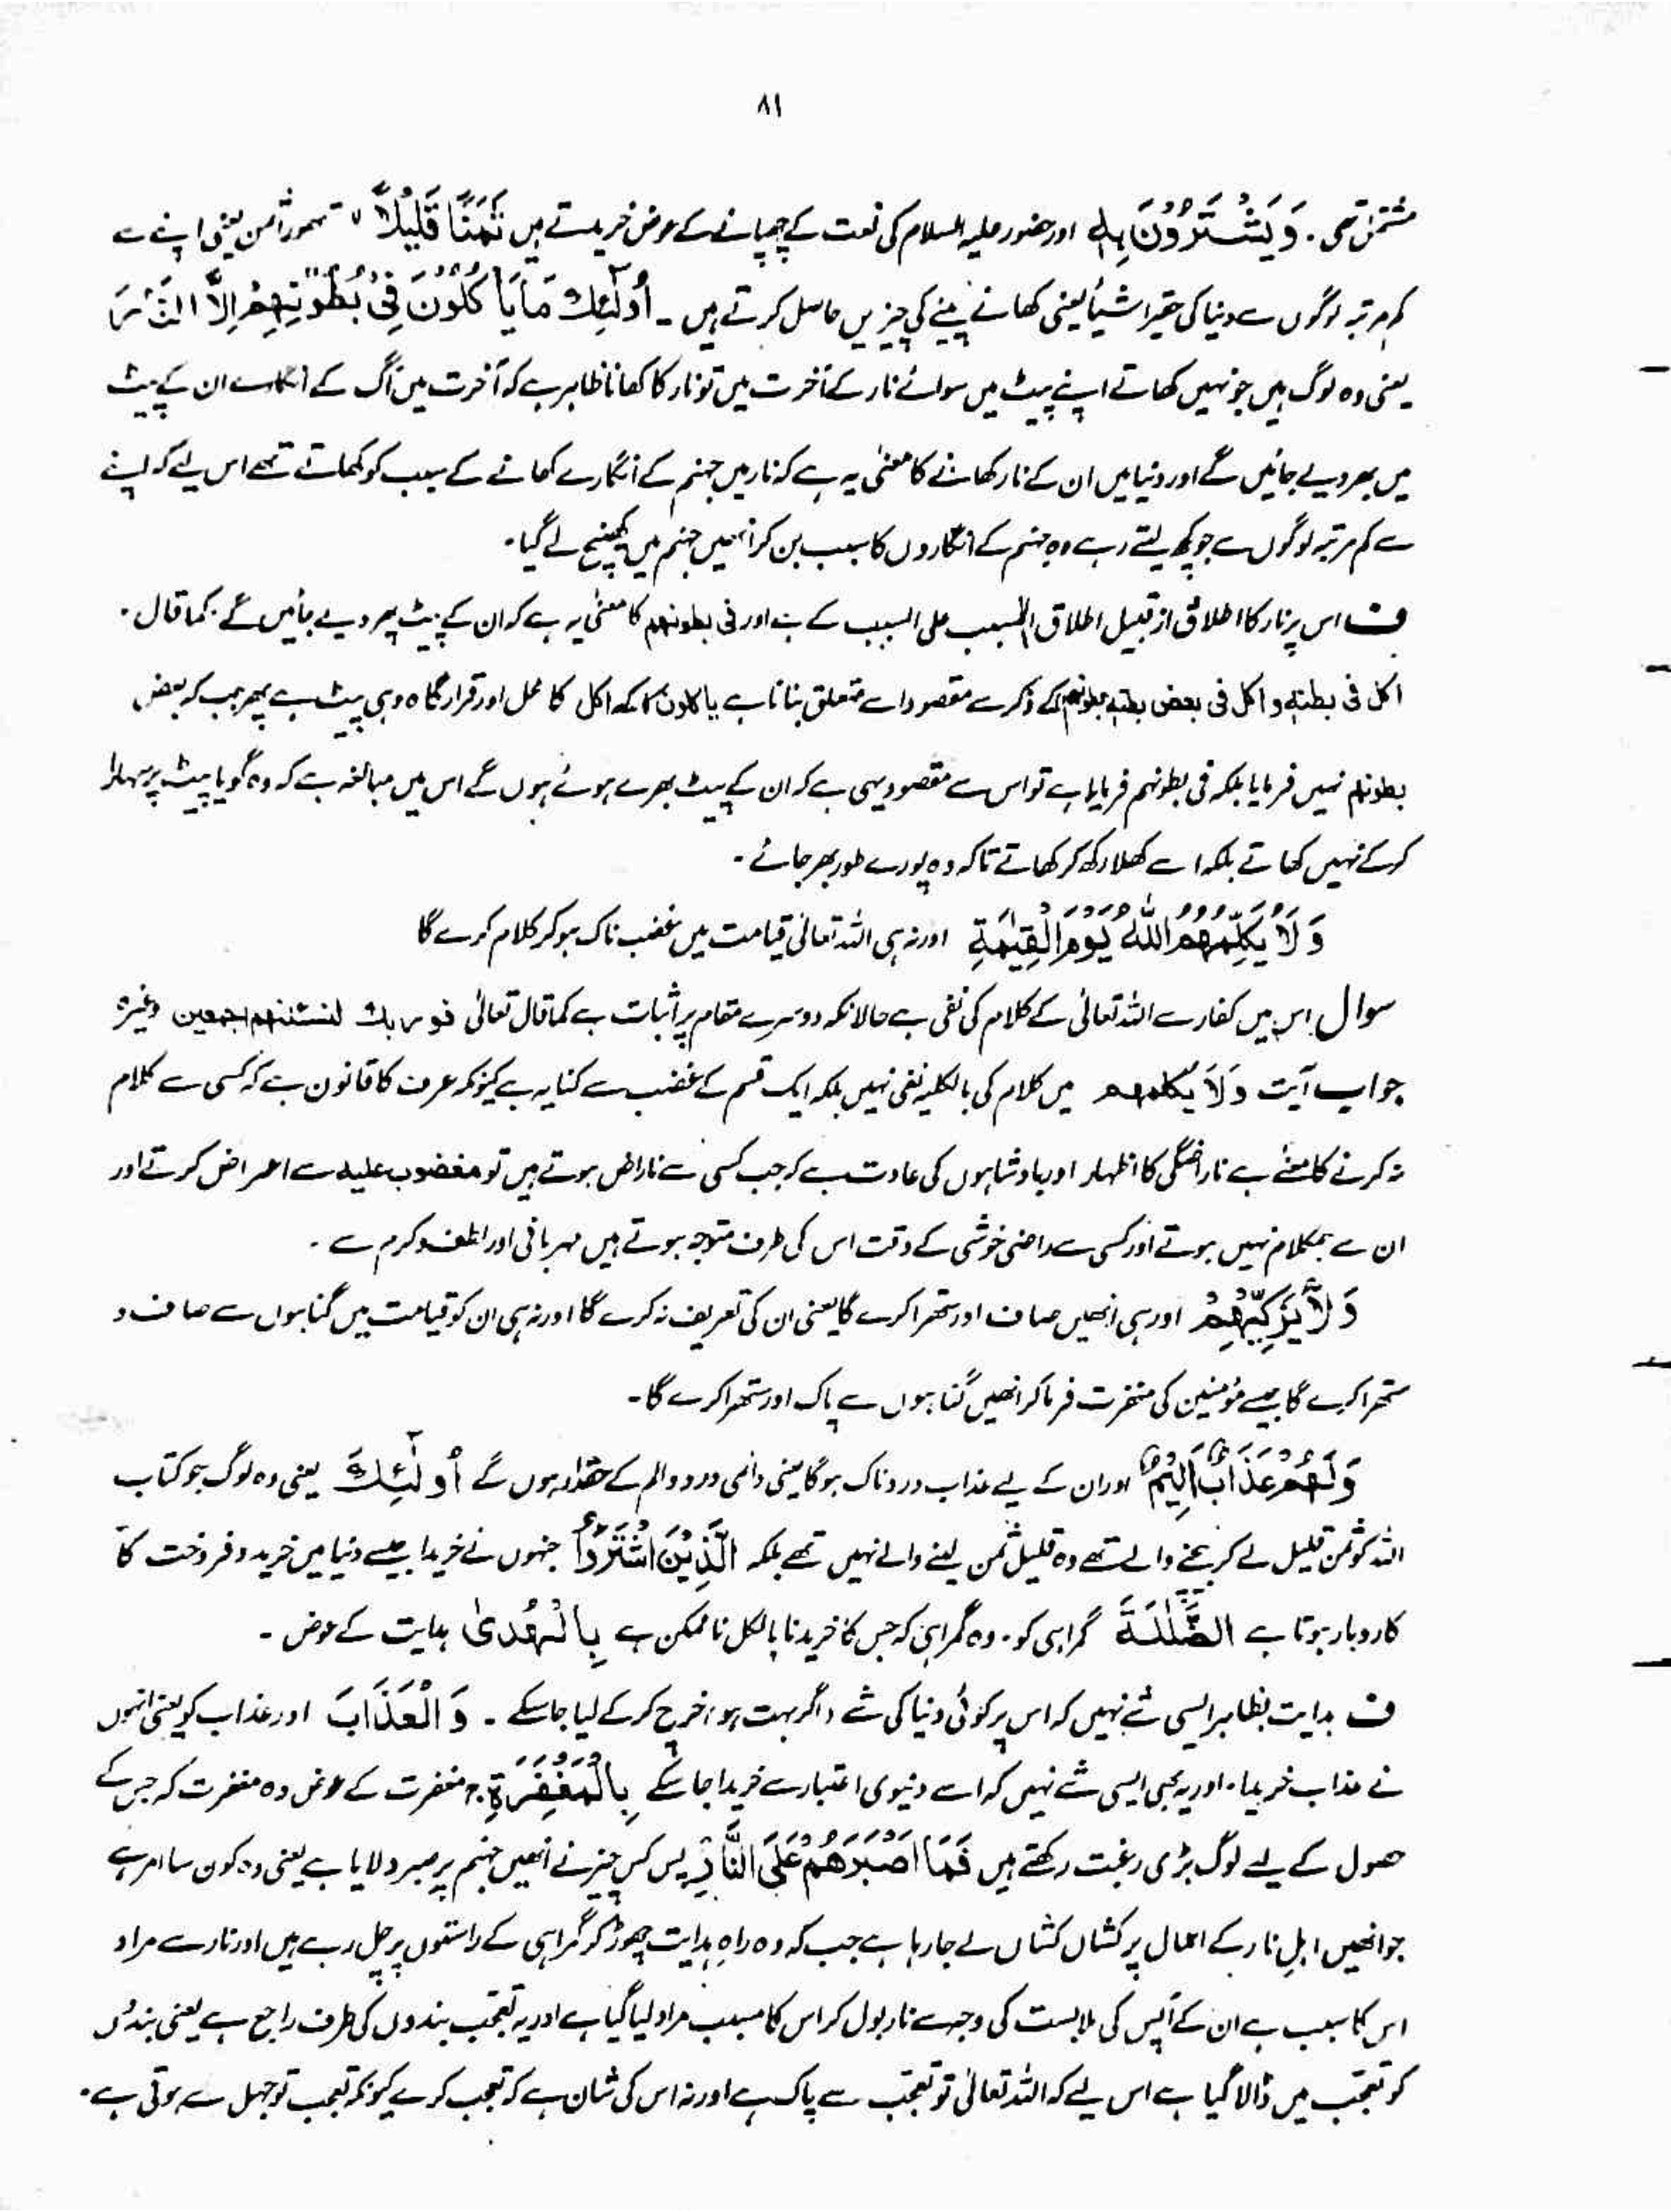 ۸۱
مشتمل تھی۔ وَيَشْتَرُوْنَ بِہٖ اور حضور علیہ السلام کی نعت کے چھپانے کے عوض خریدتے ہیں ثَمَنًا قَلِيْلًا ۙ تھوڑا ثمن یعنی اپنے سے
کم مرتبہ لوگوں سے دنیا کی حقیر اشیأ یعنی کھانے پینے کی چیزیں حاصل کرتے ہیں ۔ أُولٰٓئِكَ مَا يَأْكُلُوْنَ فِيْ بُطُوْنِهِمْ اِلَّا النَّارَ
یعنی وہ لوگ ہیں جو نہیں کھاتے اپنے پیٹ میں سوائے نار کے آخرت میں تو نار کا کھانا ظاہر ہے کہ آخرت میں آگ کے انگارے ان کے پیٹ
میں بھر دیے جائیں گے اور دنیا میں ان کے نار کھانے کا معنیٰ یہ ہے کہ نار میں جہنم کے انگارے کھانے کے سبب کو کھاتے تھے اس لیے کہ اپنے
سے کم مرتبہ لوگوں سے جو کچھ لیتے رہے وہ جہنم کے انگاروں کا سبب بن کر انہیں جہنم میں کھینچ لے گیا۔
ف اس پر نار کا اطلاق از قبیل اطلاق المسبب علی السبب کے ہے اور فی بطونہم کا معنیٰ یہ ہے کہ ان کے پیٹ بھر دیے جائیں گے۔ کما قال۔
اکل فی بطنہٖ و اکل فی بعض بطنہٖ بطونہم کے ذکر سے مقصود اسے متعلق بنانا ہے یاکلون کا کہ اکل کا محل اور قرار گاہ وہی پیٹ ہے پھر جب کہ بعض
بطونہم نہیں فرمایا بلکہ فی بطونہم فرمایا ہے تو اس سے مقصود یہی ہے کہ ان کے پیٹ بھرے ہوئے ہوں گے اس میں مبالغہ ہے کہ وہ گویا پیٹ پر سہارا
کر کے نہیں کھاتے بلکہ اسے کھلا رکھ کر کھاتے تاکہ وہ پورے طور بھر جائے۔
وَلَا يُكَلِّمُهُمُ اللّٰهُ يَوْمَ الْقِيٰمَةِ اور نہ ہی اللہ تعالیٰ قیامت میں غضب ناک ہو کر کلام کرے گا
سوال اس میں کفار سے اللہ تعالیٰ کے کلام کی نفی ہے حالانکہ دوسرے مقام پر اثبات ہے کما قال تعالیٰ فو ربك لنسئلنهم اجمعين وغیرہ
جواب آیت وَلَا يُكَلمهم میں کلام کی بالکلیہ نفی نہیں بلکہ ایک قسم کے غضب سے کنایہ ہے کیونکہ عرف کا قانون ہے کہ کسی سے کلام
نہ کرنے کا معنیٰ ہے ناراضگی کا اظہار اور بادشاہوں کی عادت ہے کہ جب کسی سے ناراض ہوتے ہیں تو مغضوب علیہ سے اعراض کرتے اور
ان سے ہمکلام نہیں ہوتے اور کسی سے راضی خوشی کے وقت اس کی طرف متوجہ ہوتے ہیں مہربانی اور لطف و کرم سے ۔
وَلَا يُزَكِّيْهِمْ اور ہی انھیں صاف اور ستھرا کرے گا یعنی ان کی تعریف نہ کرے گا اور نہ ہی ان کو قیامت میں گناہوں سے صاف و
ستھرا کرے گا جیسے مؤمنین کی مغفرت فرما کر انھیں گناہوں سے پاک اور ستھرا کرے گا۔
وَلَهُمْ عَذَابٌ اَلِيْمٌ اور ان کے لیے عذاب دردناک ہوگا یعنی دائمی درد و الم کے حقدار ہوں گے أُولٰٓئِكَ یعنی وہ لوگ جو کتاب
اللہ کو ثمن قلیل لے کر بیچنے والے تھے وہ قلیل ثمن لینے والے نہیں تھے بلکہ الَّذِيْنَ اشْتَرَوُا جنہوں نے خریدا جیسے دنیا میں خرید و فروخت کا
کاروبار ہوتا ہے الضَّلٰلَةَ گمراہی کو۔ وہ گمراہی کہ جس کا خریدنا بالکل ناممکن ہے بِالْهُدٰى ہدایت کے عوض ۔
ف ہدایت بظاہر ایسی شے نہیں کہ اس پر کوئی دنیا کی شے (اگر بہت ہو) خرچ کر کے لیا جا سکے ۔ وَالْعَذَابَ اور عذاب کو یعنی انہوں
نے عذاب خریدا۔ اور یہ بھی ایسی شے نہیں کہ اسے دنیوی اعتبار سے خریدا جا سکے بِالْمَغْفِرَةِ ج مغفرت کے عوض وہ مغفرت کہ جس کے
حصول کے لیے لوگ بڑی رغبت رکھتے ہیں فَمَا اَصْبَرَهُمْ عَلَى النَّارِ پس کس چیز نے انھیں جہنم پر صبر دلایا ہے یعنی وہ کون سا امر ہے
جو انھیں اہلِ نار کے اعمال پر کشاں کشاں لے جا رہا ہے جب کہ وہ راہِ ہدایت چھوڑ کر گمراہی کے راستوں پر چل رہے ہیں اور نار سے مراد
اس کا سبب ہے ان کے آپس کی ملابست کی وجہ سے نار بول کر اس کا مسبب مراد لیا گیا ہے اور یہ تعجب بندوں کی طرف راجع ہے یعنی بندوں
کو تعجب میں ڈالا گیا ہے اس لیے کہ اللہ تعالیٰ تو تعجب سے پاک ہے اور نہ اس کی شان ہے کہ تعجب کرے کیونکہ تعجب تو جہل سے ہوتی ہے۔